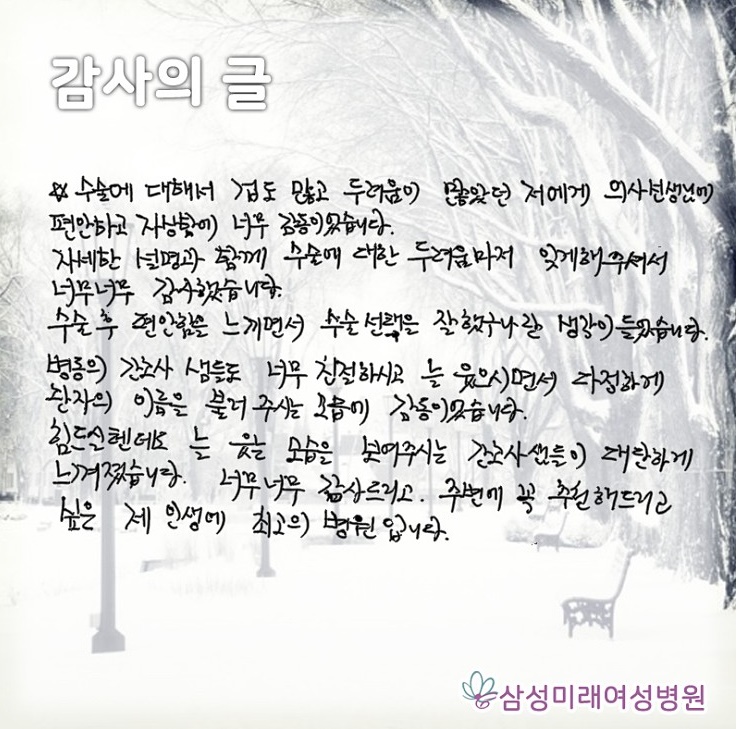 감사의 글
☆ 수술에 대해서 겁도 많고 두려움이 많았던 저에게 의사선생님에
편안하고 자상함에 너무 감동이었습니다.
자세한 설명과 함께 수술에 대한 두려움마저 잊게해주셔서
너무너무 감사했습니다.
수술 후 편안함을 느끼면서 수술선택은 잘했구나란 생각이들었습니다.
병동의 간호사 샘들도 너무 친절하시고 늘 웃으시면서 다정하게
환자의 이름을 불러 주시는 모습에 감동이었습니다.
힘드실텐데도 늘 웃는 모습을 보여주시는 간호사샘들이 대단하게
느껴졌습니다. 너무너무 감사드리고. 주변에 꼭 추천해드리고
싶은 제 인생에 최고의 병원입니다.
삼성미래여성병원